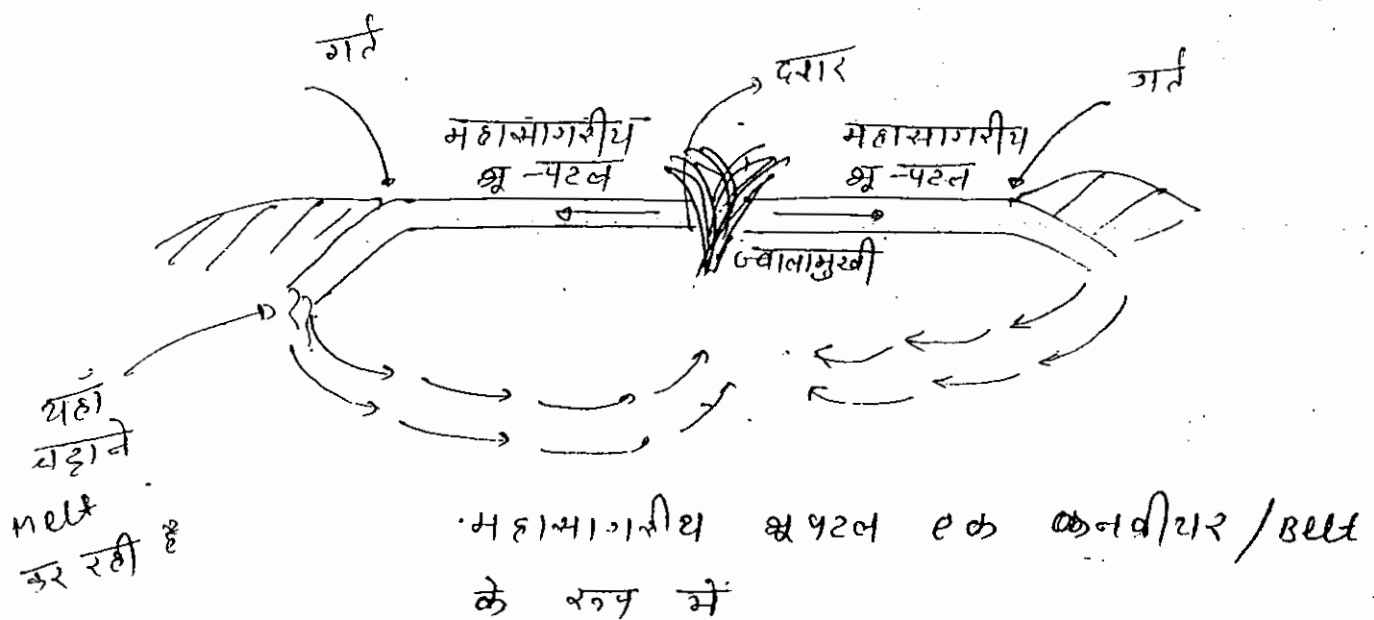 गर्त
दरार
गर्त
महासागरीय
भू-पटल
महासागरीय
भू-पटल
ज्वालामुखी
यहाँ
चट्टाने
melt
कर रही है
महासागरीय भूपटल एक कनवीयर / Belt
के रूप में